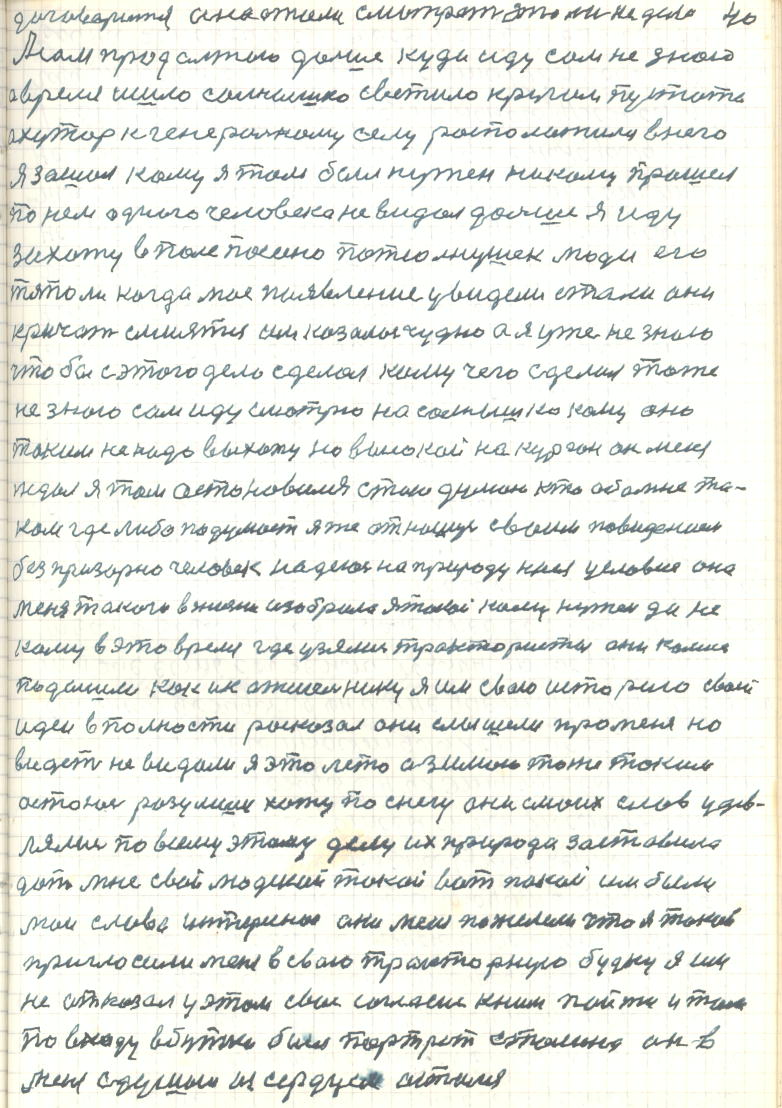 договарится она стали смотреть это ли не дело 40
Мем продолжаю далше куди иду сам не знаю
а время ишло солнышко светило кругом пустота
ахутор к генераскому селу росположили в него
я зашол кому я там был нужен никому прошел
по нем одного человека не видал далше я иду
захожу в поле посено потсолнушек люди его
пололи когда мое появление увидели стали они
кричат смиятся им козалос чудно а я уже не знаю
что бы с этого дело сделал кому чего сделал тоже
не знаю сам иду смотрю на солнышко кому оно
таким не надо выхожу но высокой на курган он меня
ждал я там остоновился стаю думаю кто обо мне та-
ком где либо подумает я же отношус своим поведением
без призорно человек надеюс на природу ние условие она
меня такого в жизни избрала я такой кому нужен да не
кому в это время где узялис трактористы они комне
подошли как ик ожиемнику я им свою историю свои
идеи в полности расказал они слышели про меня но
видет не видали я это лето а зимою тоже таким
остоюс розумиши хожу по снегу они с моих слов удев-
лялис по всему этому делу их природа заставила
дать мне свой людской такой вот покой им были
мои слова интересное они меня пожелели что я таков
приглосили меня в свою тракторную будку я им
не отказал у этом свое согласие кним пойти и там
по входу в будки был портрет сталина он в
меня с душою и сердцем остался